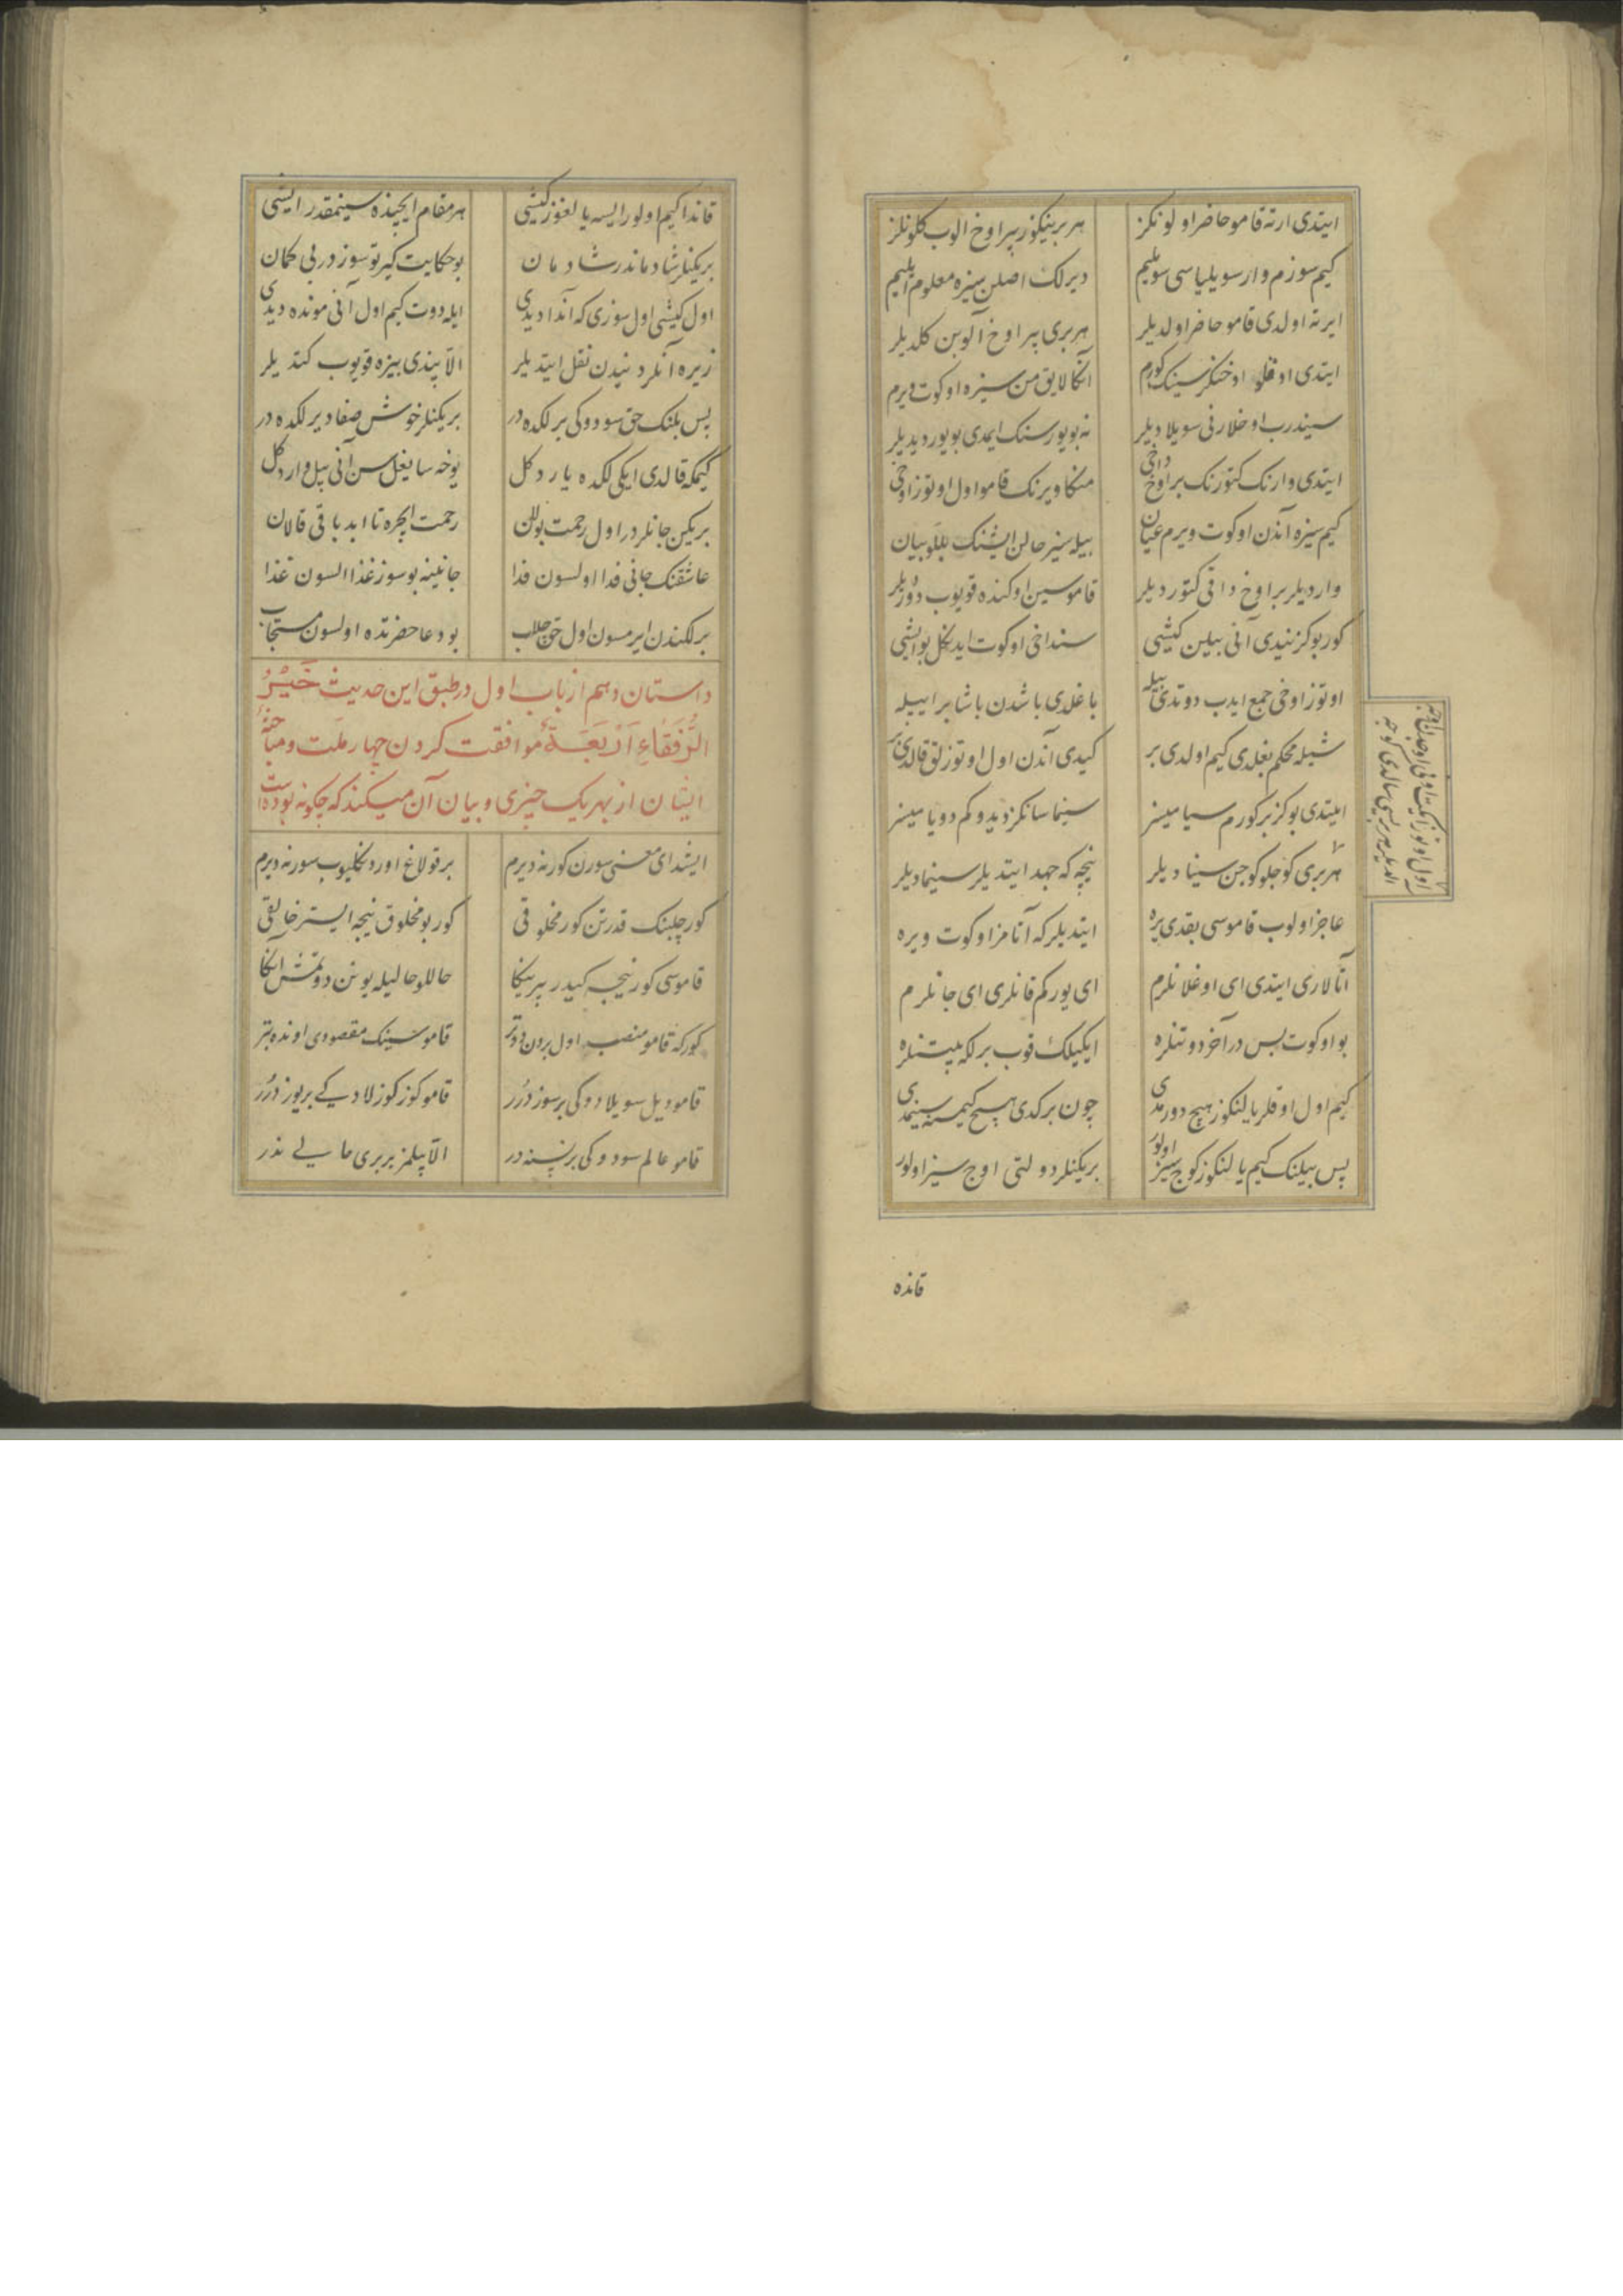 ایتدی ارته قامو حاضر اولونکز هر برینکوز بیر اوخ الوب کلونلز
کیم سوزم وار سویلیاسی سویلیم دیرلک اصلن سیزه معلوم ایلیم
ایرته اولدی قامو حاضر اولدیلر هربری بیر اوخ آلوبن کلدیلر
ایتدی اوقلو اوخنکز سینک کورم آنکا لایق من سیزه اوکوت ویرم
سیندرب اوخلارنی سویلا دیلر نه بویورسنک ایمدی بویور دیدیلر
ایتدی وارنک کتورنک بر اوخ داخی منکا ویرنک قامو اول اوتوز اوخی
کیم سیزه آندن اوکوت ویرم عیان بیله سیز حالن ایشنک بللو بیان
واردیلر بر اوخ داقی کتوردیلر قاموسین اوکنده قویوب دوردیلر
کور بو کز نیدی آنی بیلین کیشی سنداخی اوکوت ایدنکل بو ایشی
اوتوز اوخی جمع ایدب دوتدی بیله باغلدی باشدن باشا بر ایپیله
شیله محکم بغلدی کیم اولدی بر کیدی آندن اول اوتوزلق قالدی بر
ایتدی بو کز بر کورم سیا میسز سینما سانکز دیدوکم دویا میسز
هربری کوجلو کوجن سینا دیلر نیچه که جهد ایتدیلر سینمادیلر
عاجز اولوب قاموسی بقدی یره ایتدیلر که آتامز اوکوت ویره
آتالاری ایتدی ای اوغلانلرم ای یورکم قانلری ای جانلرم
بو اوکوت بس در آخر دوتنلره ایکیلک قوب برلکه یتنلره
کیم اول اوقلر یالنکوز هیچ دورمدی چون برکدی هیچ کیمسه سینمدی
پس بیلنک کیم یالنکوز کوج سیز اولور بریکنلر دولتی اوج سیز اولور
قانده
قاندا کیم اولور ایسه یالغوز کیشی هر مقام ایچینده سینمقدر ایشی
بریکنلر شادماندر شادمان بو حکایت کیرتو سوزدر بی کمان
اول کیشی اول سوزی که آندا دیدی ایله دوت کیم اول آنی مونده دیدی
زیره آنلر دنیدن نقل ایتدیلر الا پندی بیزه قویوب کتدیلر
پس بلنک حق سودوکی برلکده در بریکنلر خوش صفا دیرلکده در
کیمکه قالدی ایکی لکده یار دکل یوخه سایغل سن آنی بیل وار دکل
بریکن جانلردر اول رحمت بولان رحمت ایچره تا ابد باقی قالان
عاشقنک جانی فدا اولسون فدا جانینه بو سوز غذا السون غذا
برلکندن ایرمسون اول حق چلب بو دعا حضرتده اولسون مستجاب
داستان دهم از باب اول در طبق این حدیث خَیْرُ
الرُّفَقَاءِ اَرْبَعَةٌ موافقت کردن چهار ملت و مباحثهٔ
ایشان از بهر یک چیزی و بیان آن میکند که چکونه بوده است
ایشد ای معنی سورن کور نه دیرم بر قولاغ اورد نکلیوب سور نه دیرم
کور چلبنک قدرتن کور مخلوقی کور بو مخلوق نیجه ایستر خالقی
قاموسی کور نیجه کیدر بیر ینکا حاللو حالیله یوتن دوتمش آنکا
کورکه قامو منصب اول بردن دوتر قاموسینک مقصودی اونده بتر
قامو دیل سویلا دوکی بر سوز دُرُر قامو کوز کوزلادیکی بر یوز دُرُر
قامو عالم سودوکی بر نسنه در الا بیلمز بربری حالی ندر